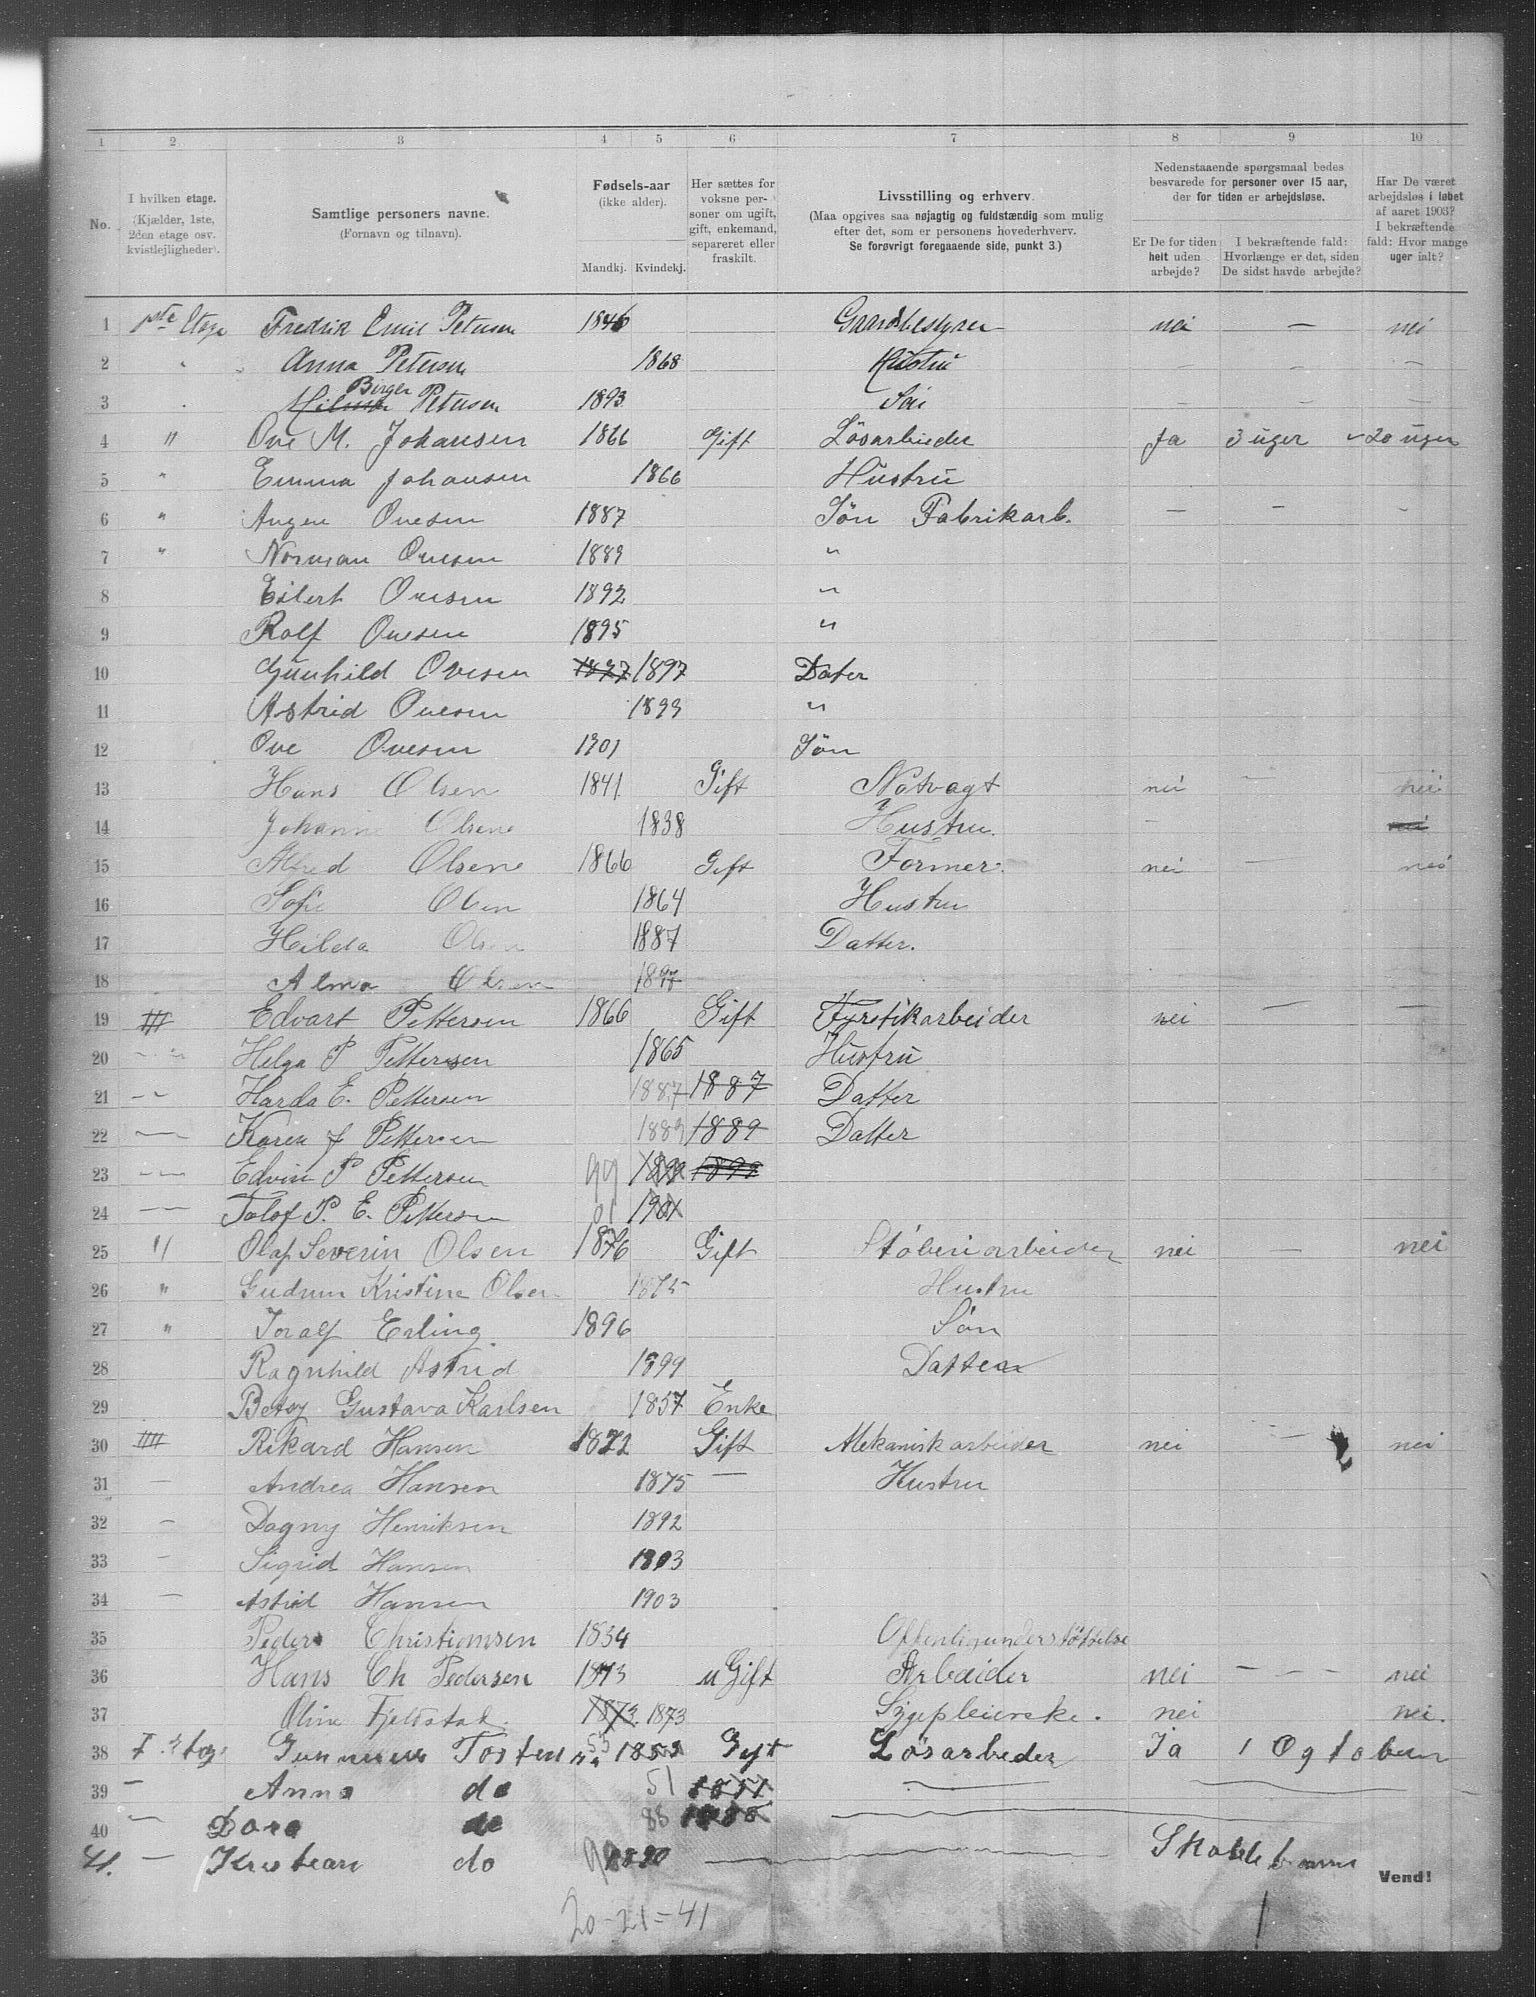 1 2 3 4 5 6 7 8 9 10
No.
I hvilken etage. (Kjælder, 1ste, 2den etage osv. kvistleiligheder).
Samtlige personers navne. (Fornavn og tilnavn).
Fødsels-aar (ikke alder). Mandkj. Kvindekj.
Her sættes for voksne personer om ugift, gift, enkemand, separeret eller fraskilt.
Livsstilling og erhverv. (Maa opgives saa nøjagtig og fuldstændig som mulig efter det, som er personens hovederhverv. Se forøvrigt foregaaende side, punkt 3.)
Nedenstaaende spørgsmaal bedes besvarede for personer over 15 aar, der for tiden er arbejdsløse.
Er De for tiden helt uden arbejde?
I bekræftende fald: Hvorlænge er det, siden De sidst havde arbejde?
Har De været arbejdsløs i løbet af aaret 1903? I bekræftende fald: Hvor mange uger ialt?
1 1ste Etage Fredrik Emil Petersen 1846 Gaardbestyrer nei — nei
2 Anna Petersen 1868 Hustru — — —
3 Birger Petersen 1893 — — —
4 " Ove M. Johansen 1866 Gift Løsarbieder Ja 3 uger 20 uger
5 " Emma Johansen 1866 Hustru
6 " Ovesen 1887 Søn Fabrikarb. — — —
7 " Norman Ovesen 1889 "
8 Eilert Ovesen 1892 "
9 Rolf Ovesen 1895 "
10 Gunhild Ovesen 1897 1897 Dater
11 Astrid Ovesen 1899 "
12 Ove Ovesen 1901 Søn
13 Hans Olsen 1841 Gift Natvagt nei — nei
14 Johanne Olsene 1838 Hustru. — nei
15 Olsene 1866 Gift Former. nei — nei
16 Sofie Olsen 1864 Hustru
17 Hilda Olsen 1887 Datter.
18 Alma Olsen
19 Edvart Pettersen 1866 Gift Fyrstikarbeider nei — —
20 Helga P Pettersen 1865 Hustru
21 Harda E. Pettersen 1887 1887 Datter
22 Karen J Pettersen 1889 1889 Datter
23 Edvin P Pettersen 99 1899 1899
24 P. E. Pettersen 01 1901
25 " Olaf Severin Olsen 1876 Gift Støberiarbeider nei — nei
26 " Gudrun Kristine Olsen 1875 Hustru
27 " Toralf Erling 1896 Søn
28 Ragnhild Astrid 1899
29 Betsy Gustava Karlsen 1857 Enke
30 Rikard Hansen 1872 Gift Mekaniskarbeider nei — nei
31 — Andrea Hansen 1875 — Hustru
32 — Dagny Henriksen 1892
33 — Sigrid Hansen
34 — Astrid Hansen 1903
35 Peder Christiansen 1834 Offentligunderstøttelse
36 Hans Ch Pedersen 1873 u Gift Arbeider nei — — — nei
37 Oline Fjeldstad. 1873. 1873 Sygepleierske. nei nei.
38 53 1853 Gift Løsarbeder Ja 1 Ogtober
39 — Anna do 51 1851
40 — Dora do 88 1888
41. — Kristian do 90 1890 Skolebarn
Vend!
20-21=41